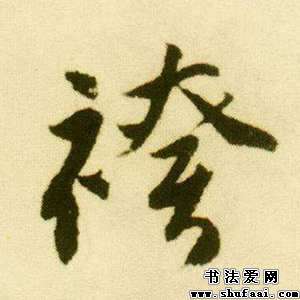 袴
书法爱网
www.shufaai.com